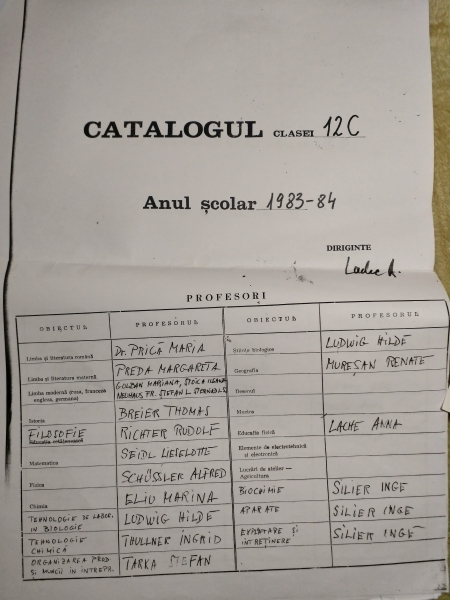 CATALOGUL CLASEI 12C
Anul școlar 1983-84
DIRIGINTE
Lache A.
PROFESORI
OBIECTUL PROFESORUL OBIECTUL PROFESORUL
Limba și literatura română Dr. PRICĂ MARIA Științe biologice LUDWIG HILDE
Limba și literatura maternă PREDA MARGARETA Geografia MUREȘAN RENATE
Limba modernă (rusa, franceza engleza, germana) GOLZAN MARIANA, STOICA ILEANA Desenul
NEUHAUS FR. ȘTEFAN L.
Istoria BREIER THOMAS Muzica
FILOSOFIE RICHTER RUDOLF Educația fizică LACHE ANNA
Matematica SEIDL LIESELOTTE Elemente de electrotehnică și electronică
Fizica SCHÜSSLER ALFRED Lucrări de atelier – Agricultura
Chimia ELIU MARINA BIOCHIMIE SILIER INGE
TEHNOLOGIE DE LABOR. IN BIOLOGIE LUDWIG HILDE APARATE SILIER INGE
TEHNOLOGIE CHIMICĂ THULLNER INGRID EXPLOATARE ȘI INTREȚINERE SILIER INGE
ORGANIZAREA PROD. ȘI MUNCII IN INTREPR. TARKA ȘTEFAN